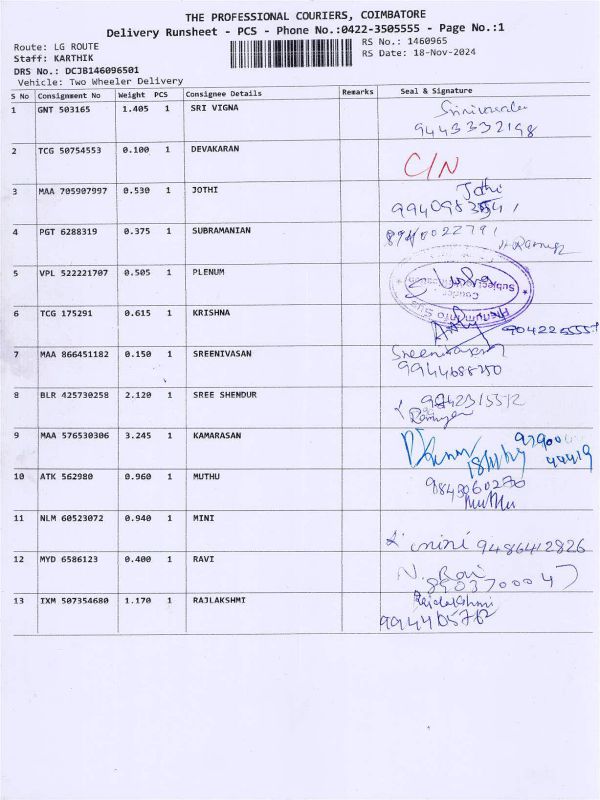 THE PROFESSIONAL COURIERS, COIMBATORE
Delivery Runsheet - PCS - Phone No.:0422-3505555 - Page No.:1
Route: LG ROUTE
RS No.: 1460965
Staff: KARTHIK
RS Date: 18-Nov-2024
DRS No.: DCJB146096501
Vehicle: Two Wheeler Delivery
S No Consignment No Weight PCS Consignee Details Remarks Seal & Signature
1 GNT 503165 1.405 1 SRI VIGNA
9443332198
2 TCG 50754553 0.100 1 DEVAKARAN C/N
3 MAA 705907997 0.530 1 JOTHI Jothi
4 PGT 6288319 0.375 1 SUBRAMANIAN
5 VPL 522221707 0.505 1 PLENUM
Courier
6 TCG 175291 0.615 1 KRISHNA
9042255557
7 MAA 866451182 0.150 1 SREENIVASAN Sreenivasan
9944688750
8 BLR 425730258 2.120 1 SREE SHENDUR
9942315512
9 MAA 576530306 3.245 1 KAMARASAN
10 ATK 562980 0.960 1 MUTHU 9843060270
Muthu
11 NLM 60523072 0.940 1 MINI
mini 9486412826
12 MYD 6586123 0.400 1 RAVI N. Ravi
8903700047
13 IXM 507354680 1.170 1 RAJLAKSHMI Rajalakshmi
994465762